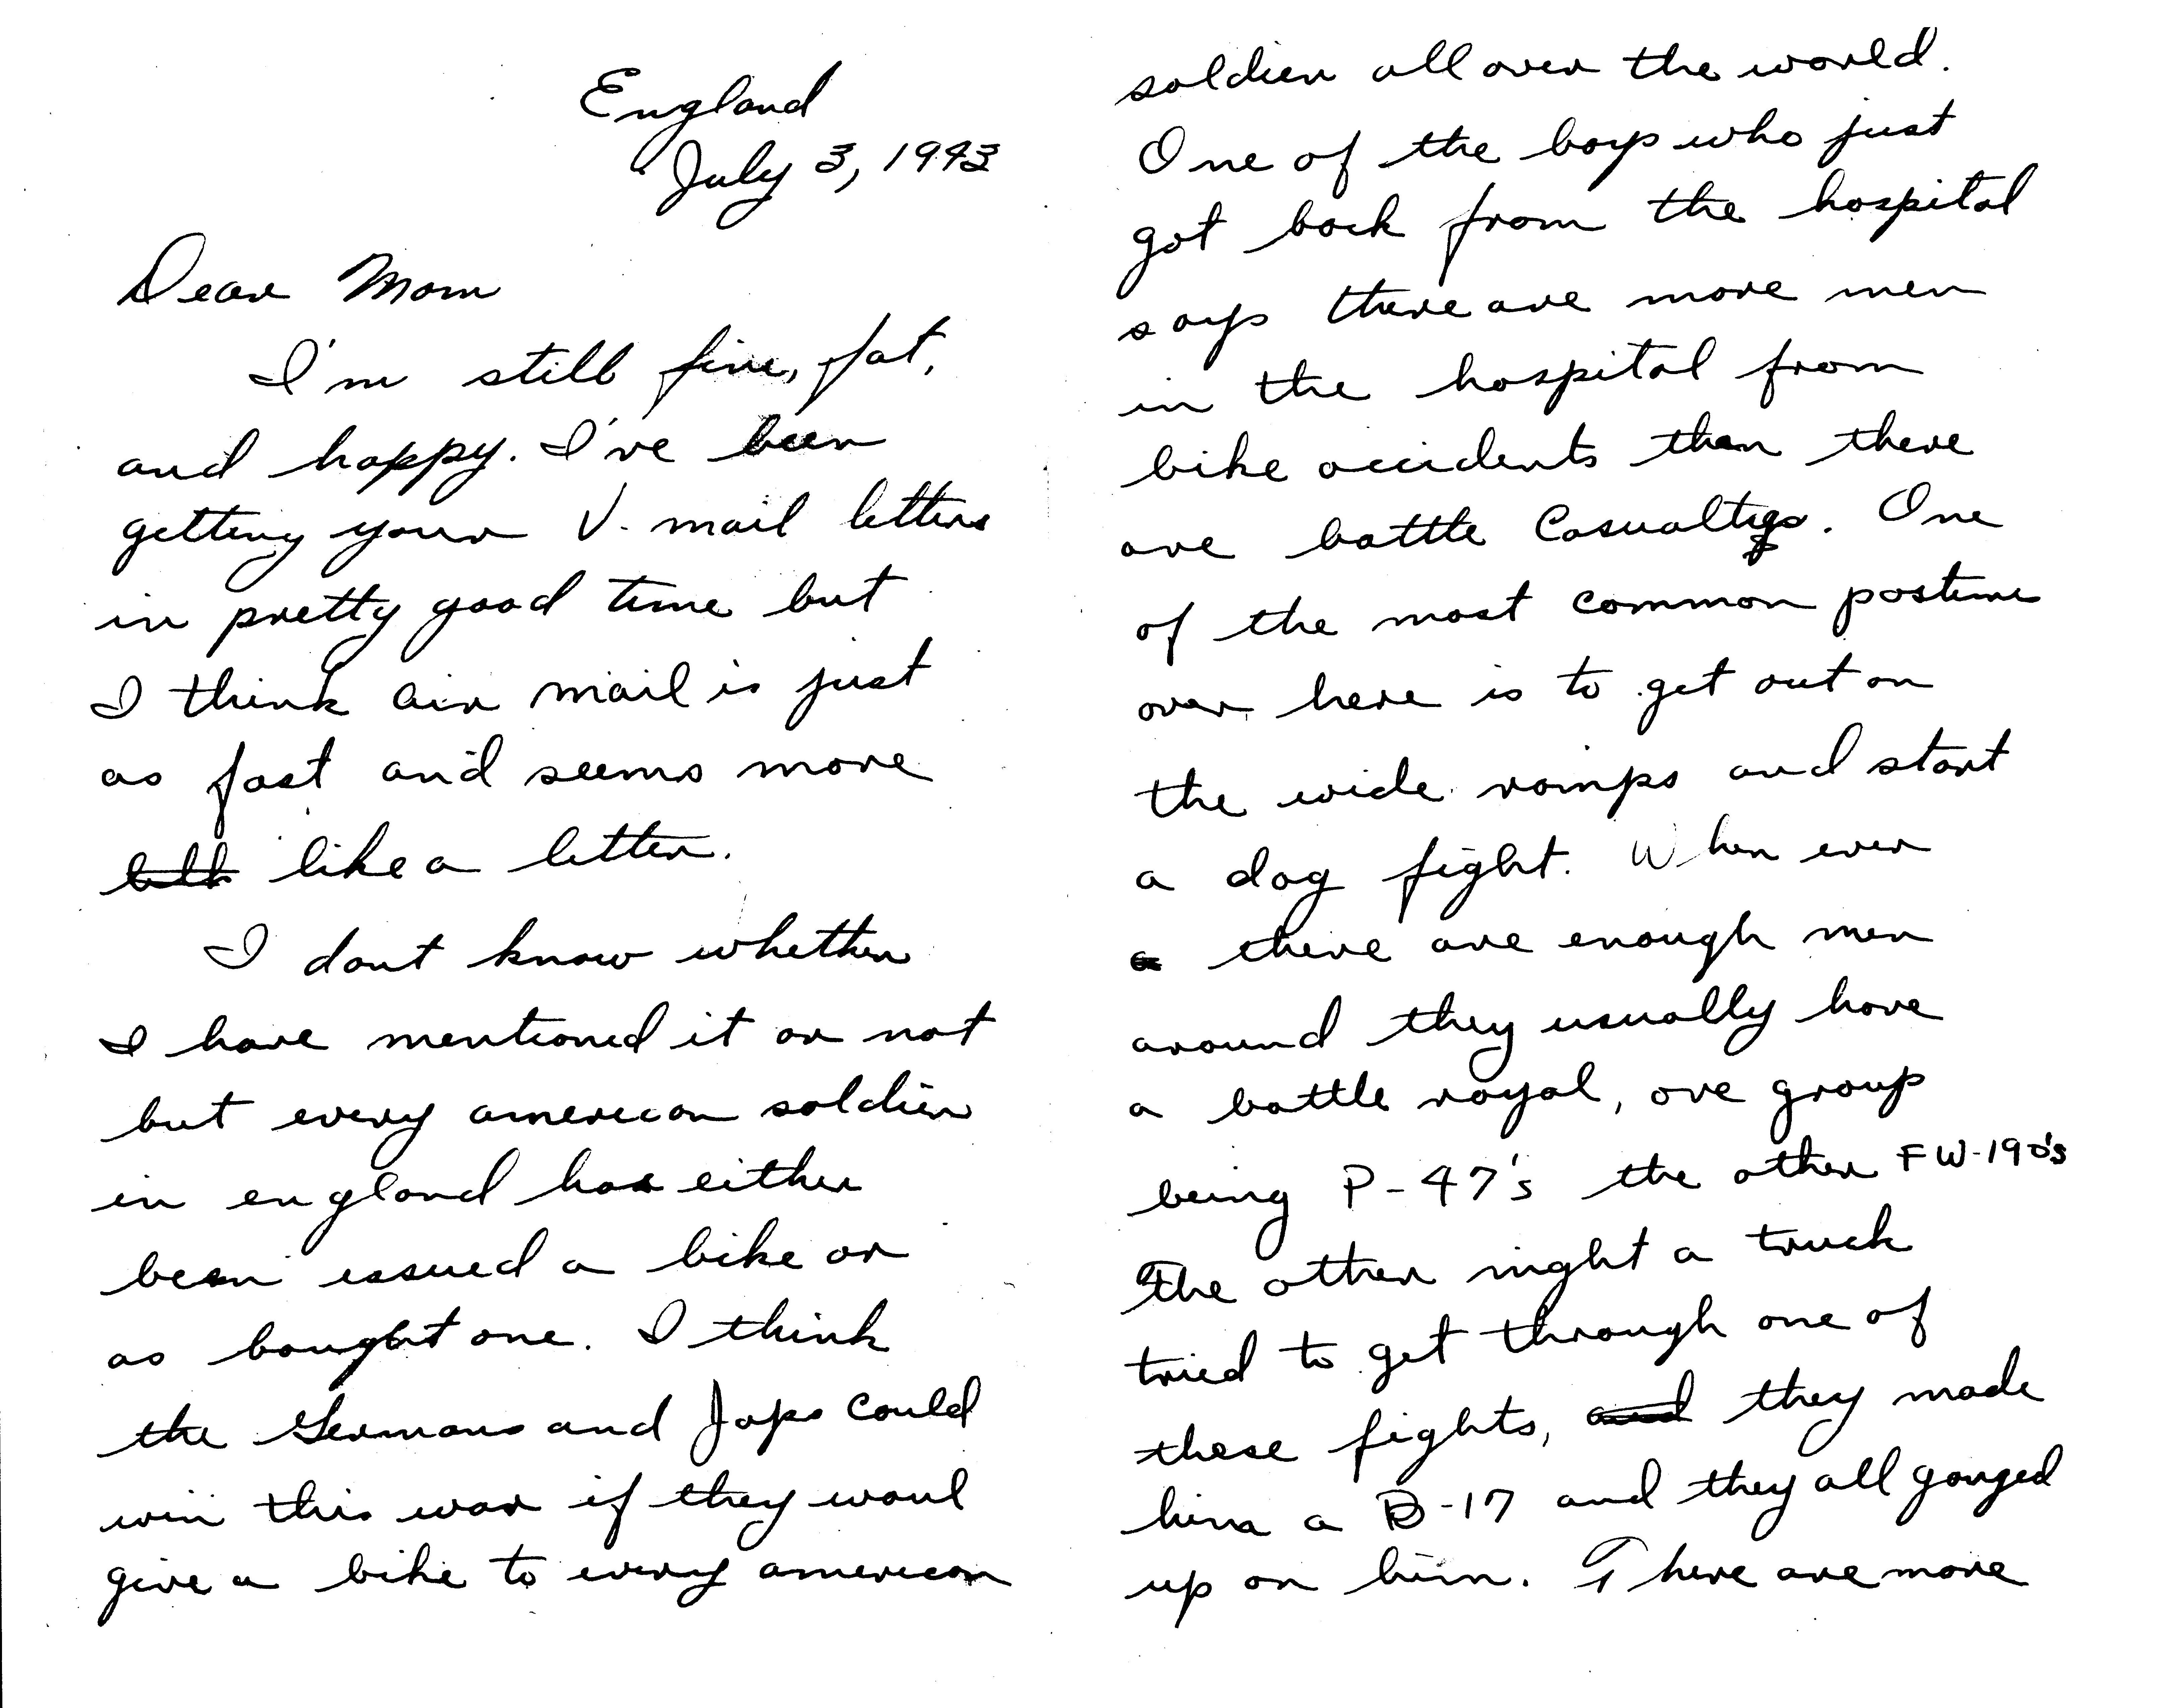 England
July 3, 1943
Dear Mom
I'm still fine, fat,
and happy. I've been
getting your V-mail letters
in pretty good time but
I think air mail is just
as fast and seems more
like a letter.
I dont know whether
I have mentioned it or not
but every american soldier
in england has either
been issued a bike or
as bought one. I think
the Germans and Japs could
win this war if they woul
give a bike to every american
soldier all over the world.
One of the boys who just
got back from the hospital
says there are more men
in the hospital from
bike accidents than there
are battle Casualtys. One
of the most common pastime
over here is to get out on
the wide ramps and start
a dog fight. When ever
there are enough men
around they usually have
a battle royal, one group
being P-47's the other FW-190's
The other night a truck
tried to get through one of
these fights, and they made
him a B-17 and they all ganged
up on him. There are more